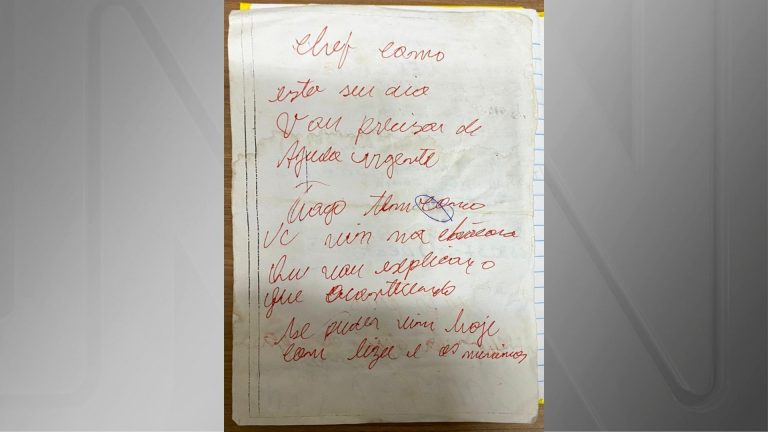 Chef como
esta seu dia
Vou precisar de
Ajuda urgente
Tiago tem como
Vc vim na
Que vou explicar o
que acontecendo
se puder vim hoje
com liza e os meninos